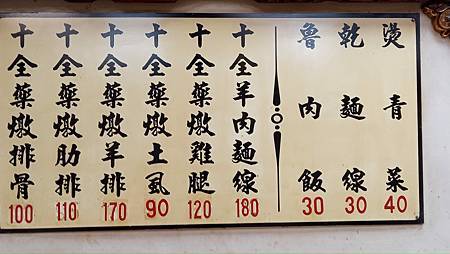 燙青菜 40
乾麵線 30
魯肉飯 30
十全羊肉麵線 180
十全藥燉雞腿 120
十全藥燉土虱 90
十全藥燉羊排 170
十全藥燉肋排 110
十全藥燉排骨 100